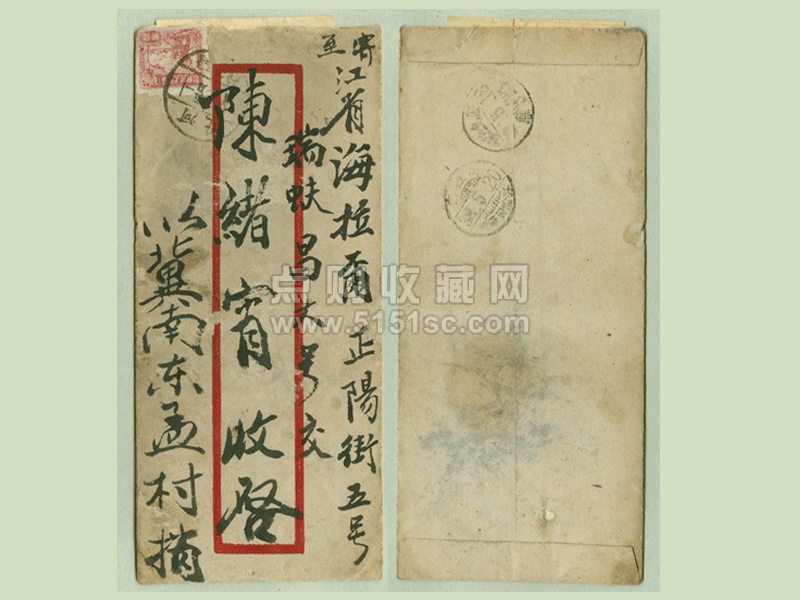 寄至
江省海拉爾正陽街五号
瑞蚨昌大号交
陳緒宵收啓
冀南东孟村
点购收藏网
www.5151sc.com